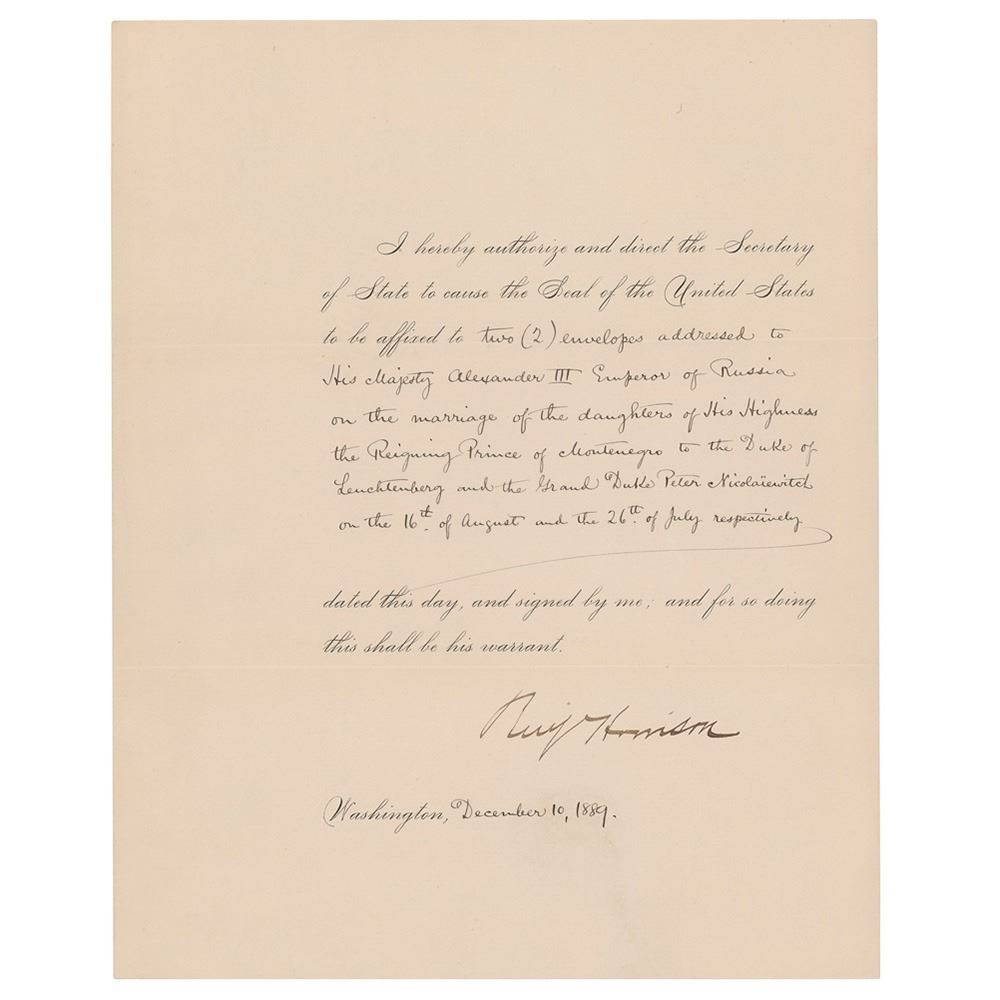 I hereby authorize and direct the Secretary
of State to cause the Seal of the United States
to be affixed to two (2) envelopes addressed to
His Majesty Alexander III Emperor of Russia
on the marriage of the daughters of His Highness
the Reigning Prince of Montenegro to the Duke of
Leuchtenberg and the Grand Duke Peter Nicolaïewitch
on the 16th. of August and the 26th. of July respectively
dated this day, and signed by me; and for so doing
this shall be his warrant.
Benj Harrison
Washington, December 10, 1889.